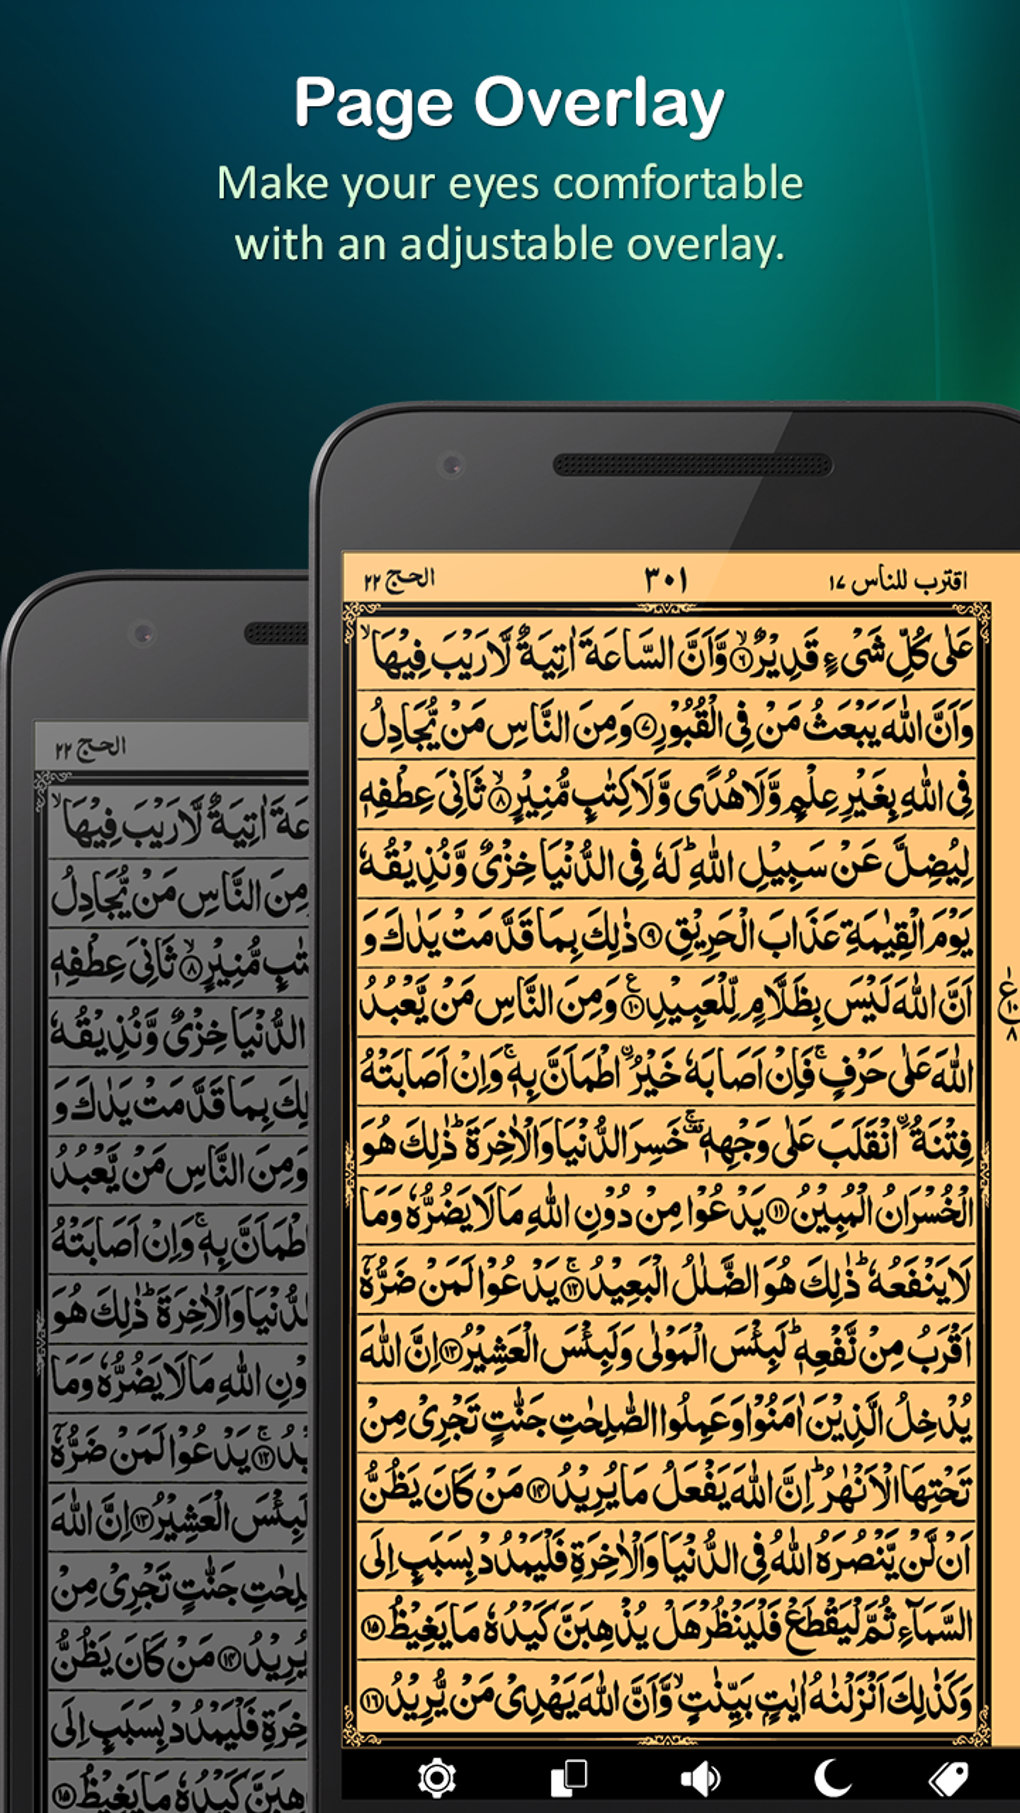 Page Overlay
Make your eyes comfortable
with an adjustable overlay.
الحج ٢٢
٣٠١
اقترب للناس ١٧
عَلٰى كُلِّ شَىْءٍ قَدِيْرٌ ۙ‏﴿۶﴾ وَّاَنَّ السَّاعَةَ اٰتِيَةٌ لَّا رَيْبَ فِيْهَا ۙ
وَاَنَّ اللّٰهَ يَبْعَثُ مَنْ فِى الْقُبُوْرِ ﴿۷﴾ وَمِنَ النَّاسِ مَنْ يُّجَادِلُ
فِى اللّٰهِ بِغَيْرِ عِلْمٍ وَّلَا هُدًى وَّلَا كِتٰبٍ مُّنِيْرٍ ۙ﴿۸﴾ ثَانِىَ عِطْفِهٖ
لِيُضِلَّ عَنْ سَبِيْلِ اللّٰهِ ؕ لَهٗ فِى الدُّنْيَا خِزْىٌ وَّنُذِيْقُهٗ
يَوْمَ الْقِيٰمَةِ عَذَابَ الْحَرِيْقِ ﴿۹﴾ ذٰلِكَ بِمَا قَدَّمَتْ يَدٰكَ وَ
اَنَّ اللّٰهَ لَيْسَ بِظَلَّامٍ لِّلْعَبِيْدِ ﴿۱۰﴾ ع وَمِنَ النَّاسِ مَنْ يَّعْبُدُ
اللّٰهَ عَلٰى حَرْفٍ ۚ فَاِنْ اَصَابَهٗ خَيْرُ ۨاطْمَاَنَّ بِهٖ ۚ وَاِنْ اَصَابَتْهُ
فِتْنَةُ ۨانْقَلَبَ عَلٰى وَجْهِهٖ ۚ خَسِرَ الدُّنْيَا وَالْاٰخِرَةَ ؕ ذٰلِكَ هُوَ
الْخُسْرَانُ الْمُبِيْنُ ﴿۱۱﴾ يَدْعُوْا مِنْ دُوْنِ اللّٰهِ مَا لَا يَضُرُّهٗ وَمَا
لَا يَنْفَعُهٗ ؕ ذٰلِكَ هُوَ الضَّلٰلُ الْبَعِيْدُ ۚ﴿۱۲﴾ يَدْعُوْا لَمَنْ ضَرُّهٗۤ
اَقْرَبُ مِنْ نَّفْعِهٖ ؕ لَبِئْسَ الْمَوْلٰى وَلَبِئْسَ الْعَشِيْرُ ﴿۱۳﴾ اِنَّ اللّٰهَ
يُدْخِلُ الَّذِيْنَ اٰمَنُوْا وَعَمِلُوا الصّٰلِحٰتِ جَنّٰتٍ تَجْرِىْ مِنْ
تَحْتِهَا الْاَنْهٰرُ ؕ اِنَّ اللّٰهَ يَفْعَلُ مَا يُرِيْدُ ﴿۱۴﴾ مَنْ كَانَ يَظُنُّ
اَنْ لَّنْ يَّنْصُرَهُ اللّٰهُ فِى الدُّنْيَا وَالْاٰخِرَةِ فَلْيَمْدُدْ بِسَبَبٍ اِلَى
السَّمَآءِ ثُمَّ لْيَقْطَعْ فَلْيَنْظُرْ هَلْ يُذْهِبَنَّ كَيْدُهٗ مَا يَغِيْظُ ﴿۱۵﴾
وَكَذٰلِكَ اَنْزَلْنٰهُ اٰيٰتٍۢ بَيِّنٰتٍ ۙ وَّاَنَّ اللّٰهَ يَهْدِىْ مَنْ يُّرِيْدُ ﴿۱۶﴾
الحج ٢٢
اٰتِيَةٌ لَّا رَيْبَ فِيْهَا ۙ
مِنَ النَّاسِ مَنْ يُّجَادِلُ
مُّنِيْرٍ ۙ﴿۸﴾ ثَانِىَ عِطْفِهٖ
الدُّنْيَا خِزْىٌ وَّنُذِيْقُهٗ
بِمَا قَدَّمَتْ يَدٰكَ وَ
وَمِنَ النَّاسِ مَنْ يَّعْبُدُ
بِهٖ ۚ وَاِنْ اَصَابَتْهُ
وَالْاٰخِرَةَ ؕ ذٰلِكَ هُوَ
اللّٰهِ مَا لَا يَضُرُّهٗ وَمَا
﴿۱۲﴾ يَدْعُوْا لَمَنْ ضَرُّهٗۤ
الْعَشِيْرُ ﴿۱۳﴾ اِنَّ اللّٰهَ
جَنّٰتٍ تَجْرِىْ مِنْ
يُرِيْدُ ﴿۱۴﴾ مَنْ كَانَ يَظُنُّ
فَلْيَمْدُدْ بِسَبَبٍ اِلَى
كَيْدُهٗ مَا يَغِيْظُ ﴿۱۵﴾